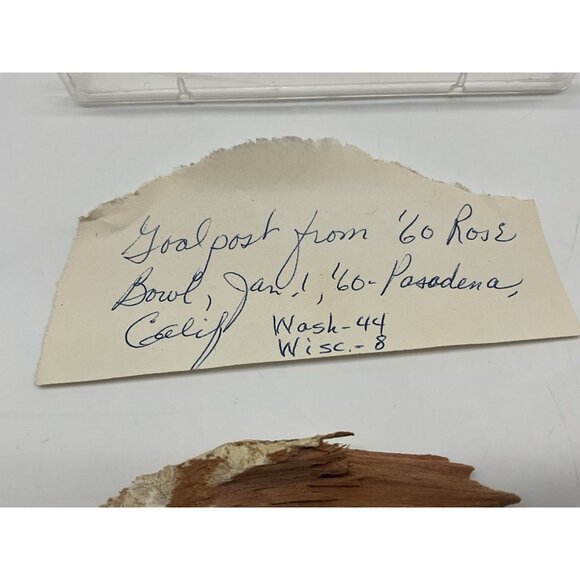 Goalpost from '60 Rose
Bowl, Jan. 1, '60 - Pasadena,
Calif
Wash - 44
Wisc. - 8